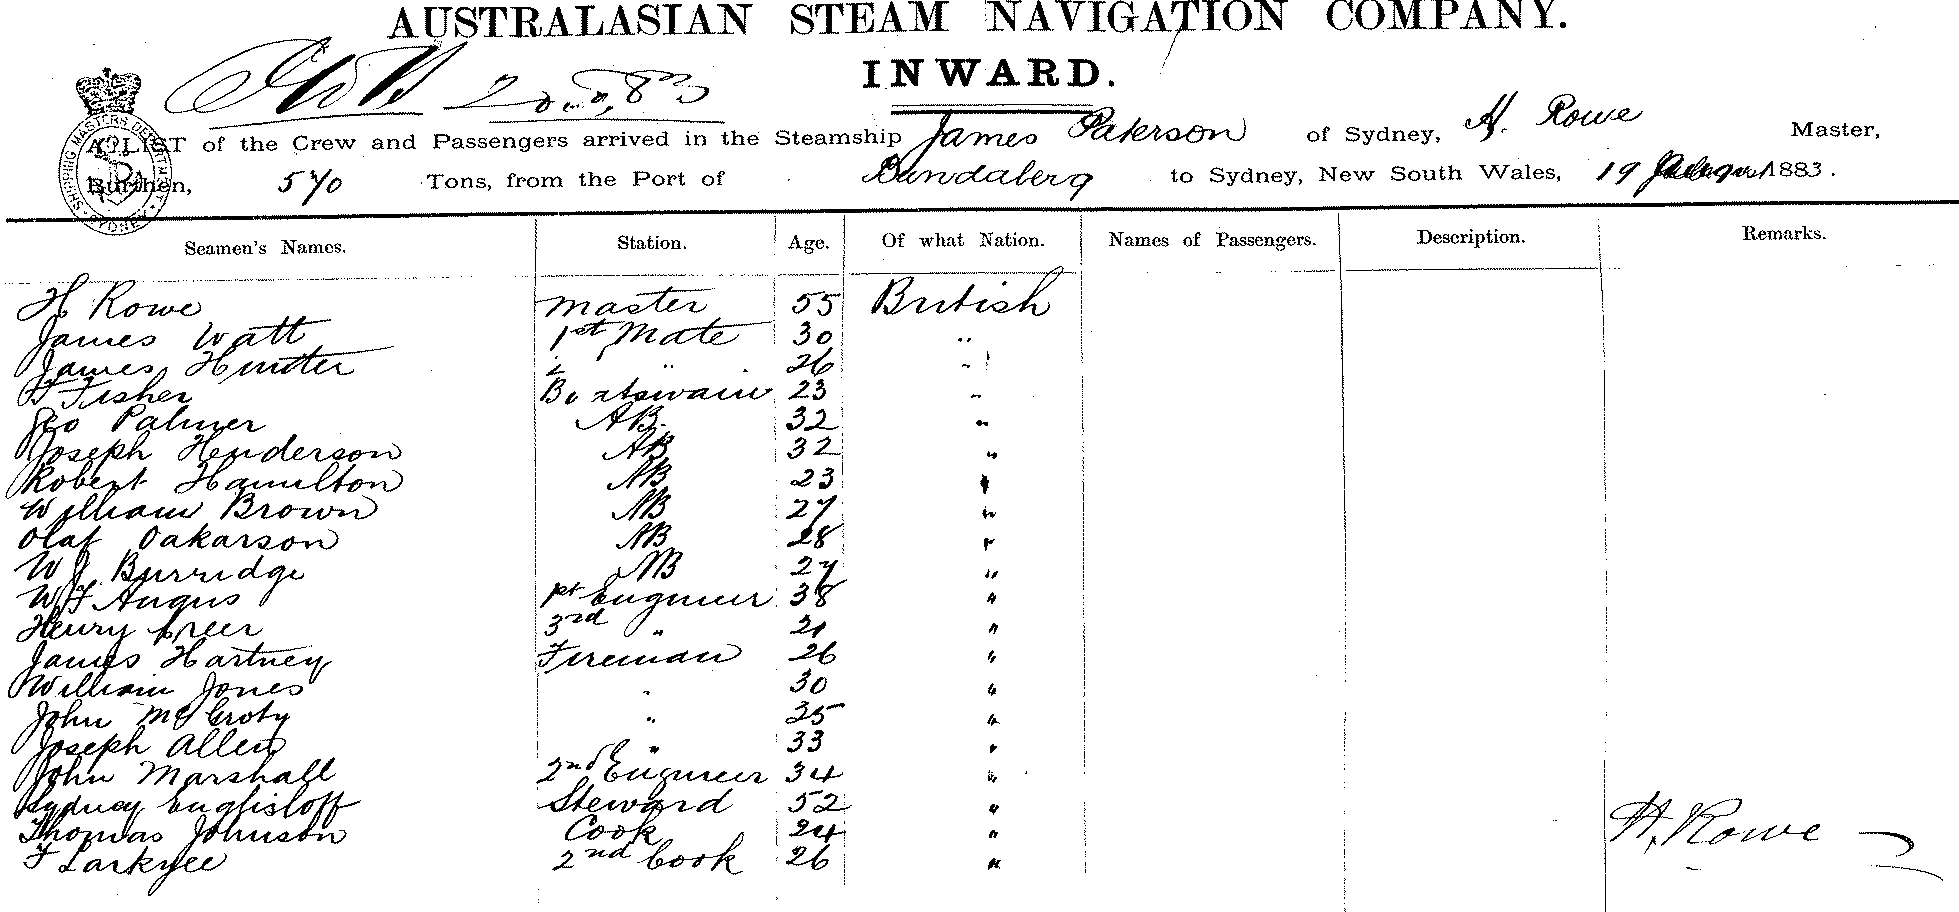 AUSTRALASIAN STEAM NAVIGATION COMPANY.
INWARD.
A LIST of the Crew and Passengers arrived in the Steamship James Paterson of Sydney, H. Rowe Master,
Burthen, 570 Tons, from the Port of Bundaberg to Sydney, New South Wales, 19 August 1883.
SHIPPING MASTERS DEPARTMENT SYDNEY
Seamen's Names. Station. Age. Of what Nation. Names of Passengers. Description. Remarks.
H Rowe master 55 British
James Watt 1st Mate 30 "
James Hunter 2 " 26 "
F Fisher Boatswain 23 "
Geo Palmer AB. 32 "
Joseph Henderson AB 32 "
Robert Hamilton AB 23 "
William Brown AB 27 "
Olaf Oakarson AB 28 "
W J Burridge AB 27 "
W F Angus 1st Engineer 38 "
Henry Greer 3rd " 21 "
James Hartney Fireman 26 "
William Jones " 30 "
John McGroty " 25 "
Joseph Allen " 33 "
John Marshall 2nd Engineer 34 "
Sydney Englisloff Steward 52 "
Thomas Johnson Cook 24 " H. Rowe
F Larkyee 2nd Cook 26 "